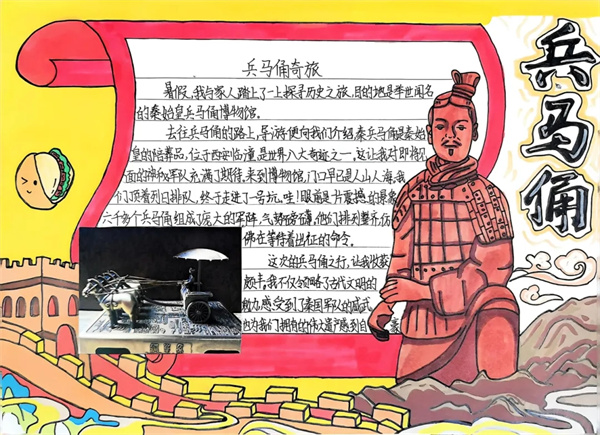 兵马俑
兵马俑奇旅
暑假,我与家人踏上了一上探寻历史之旅,目的地是举世闻名
的秦始皇兵马俑博物馆。
去往兵马俑的路上,导游便向我们介绍秦兵马俑是秦始
皇的陪葬品,位于西安临潼,是世界八大奇迹之一,这让我对即将
面的神秘军队充满了期待,来到博物馆,门口早已是人山人海,我
们顶着烈日排队,终于走进了一号坑。哇!眼前是片震撼的景象
六千多个兵马俑组成了庞大的军阵,气势磅礴,他们排列整齐,仿
佛在等待着出征的命令。
这次的兵马俑之行,让我收获
颇丰,我不仅领略了古代文明的
魅力,感受到了秦国军人的威武
也为我们拥有的伟大遗产感到自豪